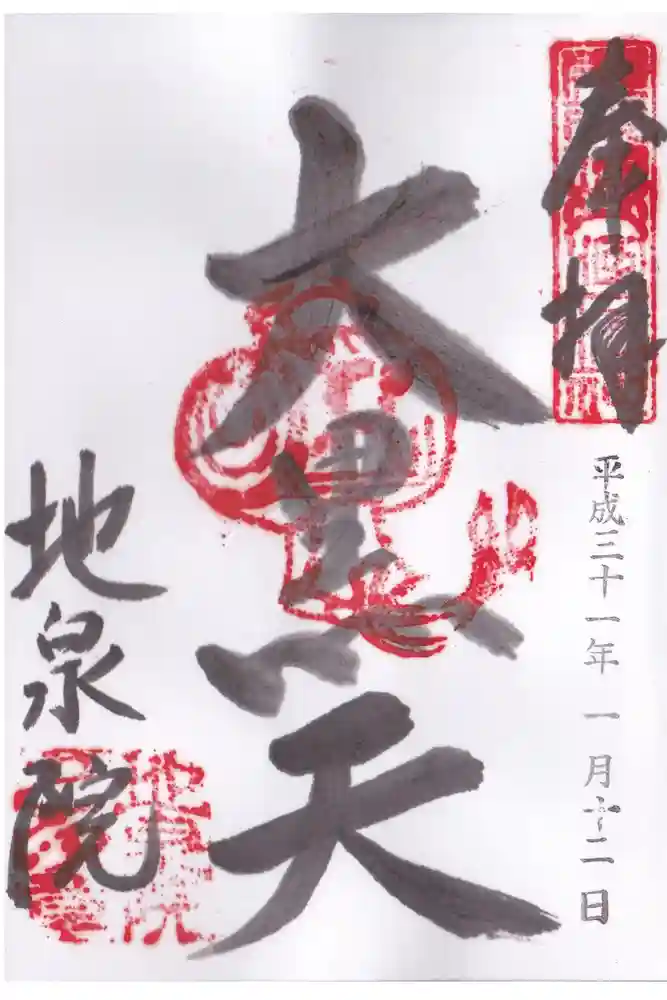 奉拝
平成三十一年 一月十二日
大黒天
地泉院